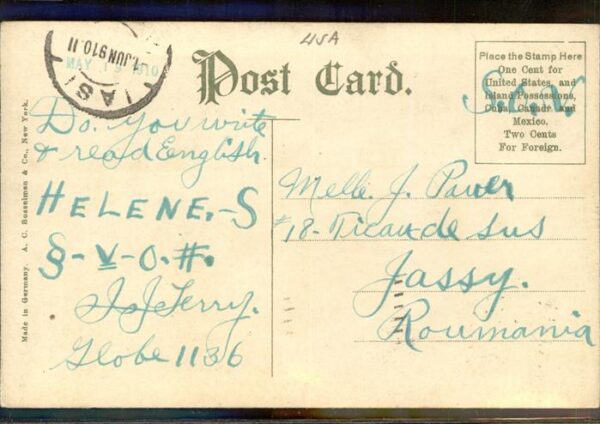 USA
IASI
1.JUN910.11
MAY 19 1910
Post Card.
Place the Stamp Here
One Cent for
United States, and
Island Possessions,
Cuba, Canada and
Mexico.
Two Cents
For Foreign.
S.o.V
Do. You write
& read English.
HELENE.-S
§-V-O.#.
J. J Terry.
Globe 1136
Melle. J. Paver
#18- Ticau de sus
Jassy.
Roumania
Made in Germany. A. C. Bosselman & Co., New York.